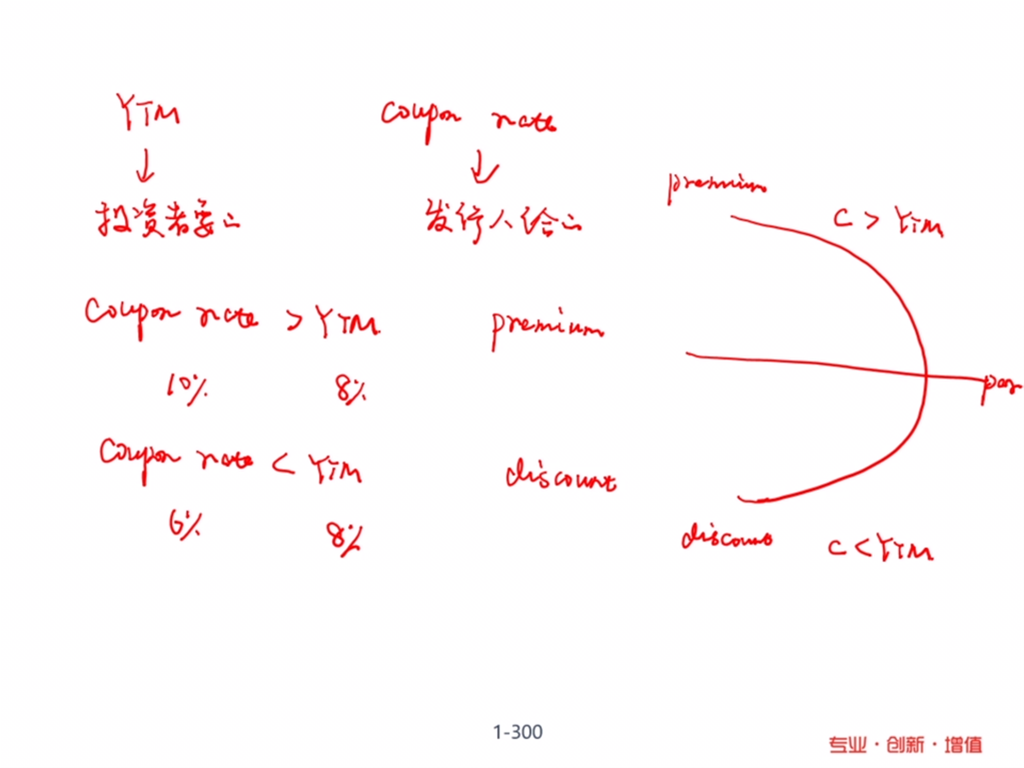 YTM
coupon rate
↓
↓
投资者要的
发行人给的
premium
C > YTM
coupon rate > YTM
premium
10%
8%
par
coupon rate < YTM
discount
6%
8%
discount
C < YTM
1-300
专业·创新·增值